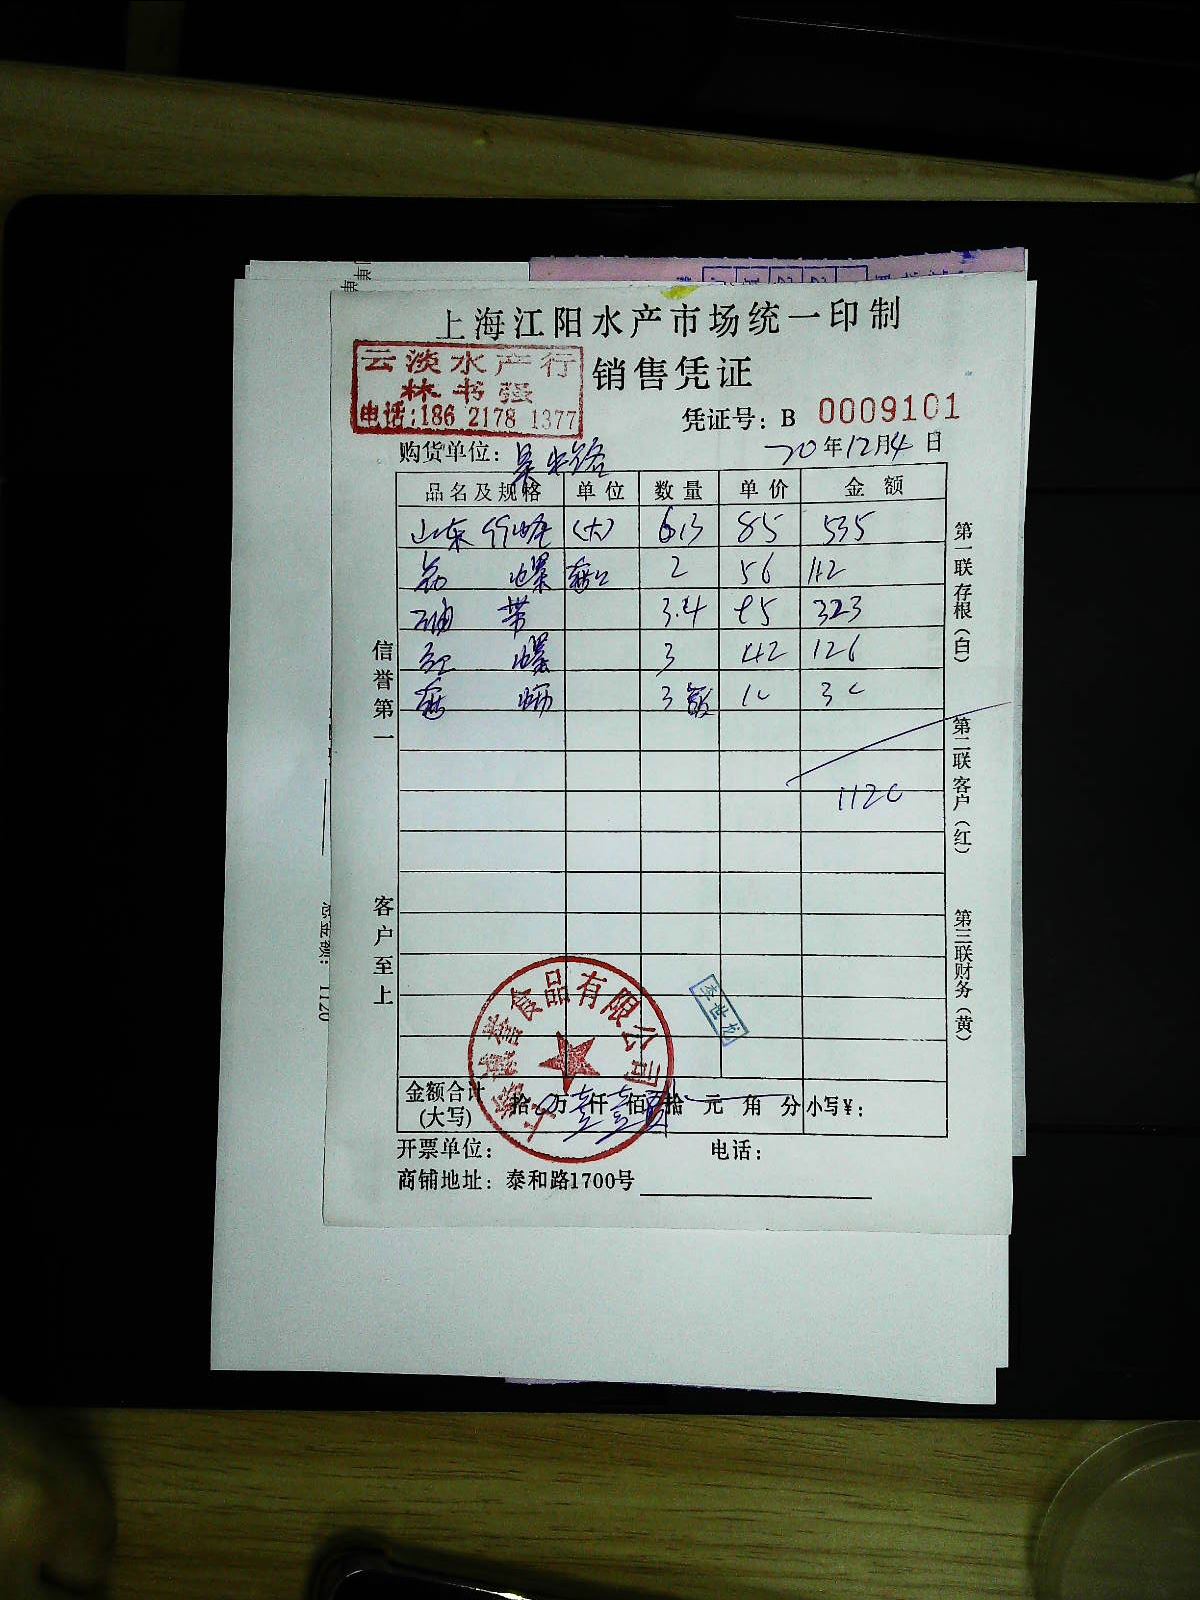 上海江阳水产市场统一印制
云淡水产行
林书强
电话:186 2178 1377
销售凭证
凭证号: B 0009101
购货单位:
20年12月4日
品名及规格 单位 数量 单价 金额
山东 (大) 6.3 85 535
螺 2 56 112
油带 3.4 95 323
红螺 3 42 126
3 10 30
1120
信誉第一
客户至上
第一联存根(白)
第二联客户(红)
第三联财务(黄)
食品有限公司
李世龙
金额合计(大写) 拾 万 仟 佰 拾 元 角 分 小写¥:
开票单位: 电话:
商铺地址: 泰和路1700号
1120